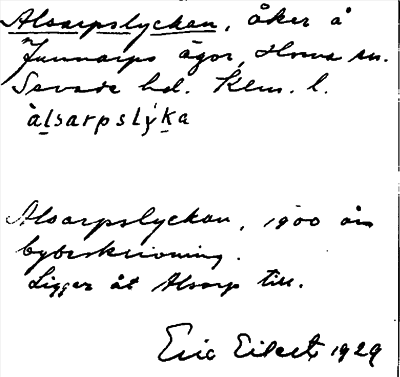 Alsarpslyckan, åker å
Junnarps ägor, Hova sn.
Sevede hd. Klm. l.
àlsarpslýka
Alsarpslyckan, 1900 års
bybeskrivning.
Ligger åt Alsarp till.
Eric 1929